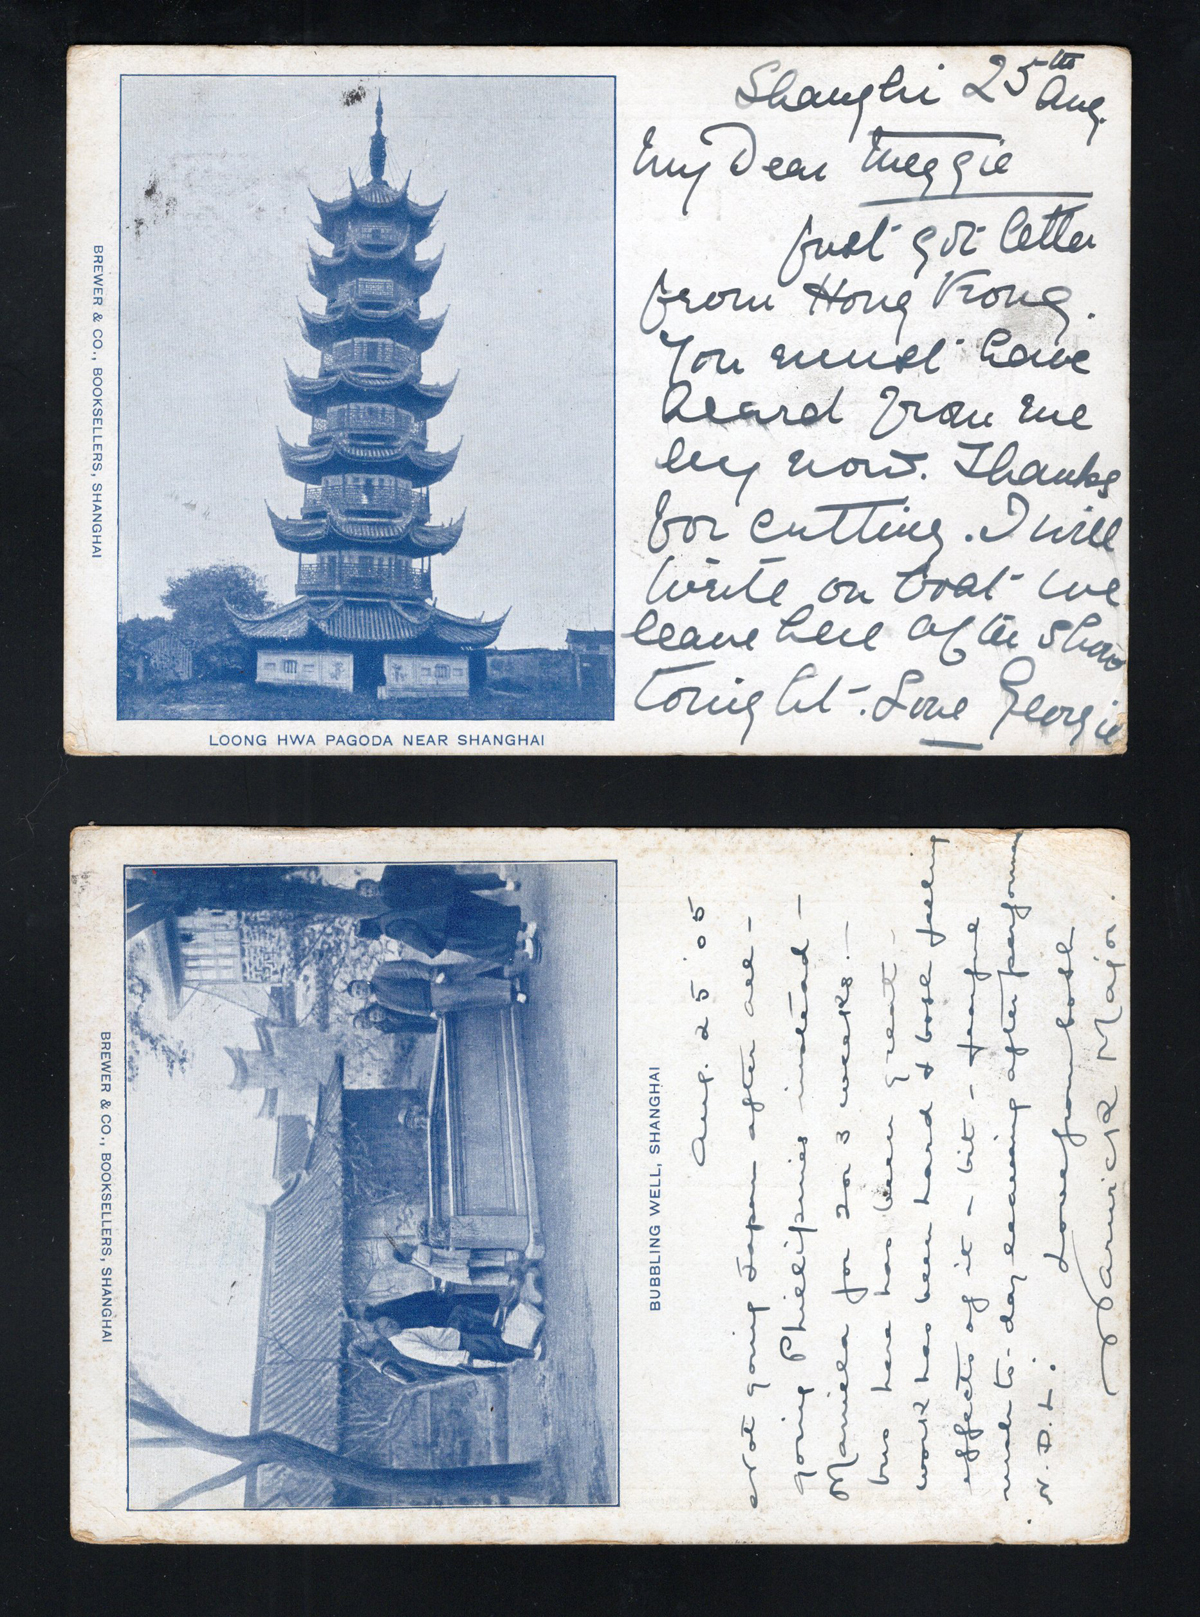 BREWER & CO., BOOKSELLERS, SHANGHAI
LOONG HWA PAGODA NEAR SHANGHAI
Shanghi 25th
Aug.
My Dear Meggie
just got letter
from Hong Kong.
You must have
heard from me
by now. Thanks
for cutting. I will
write on boat we
leave here after show
tonight. Love Georgie
BREWER & CO., BOOKSELLERS, SHANGHAI
BUBBLING WELL, SHANGHAI
Aug. 25 '05
Not going Japan after all -
going Phillipines instead -
Manilla for 2 or 3 weeks. -
bus here has been great -
work has been hard & both feeling
effects of it - a bit -
to-day leaving after
N.D.L. Love from both
Warwick Major.